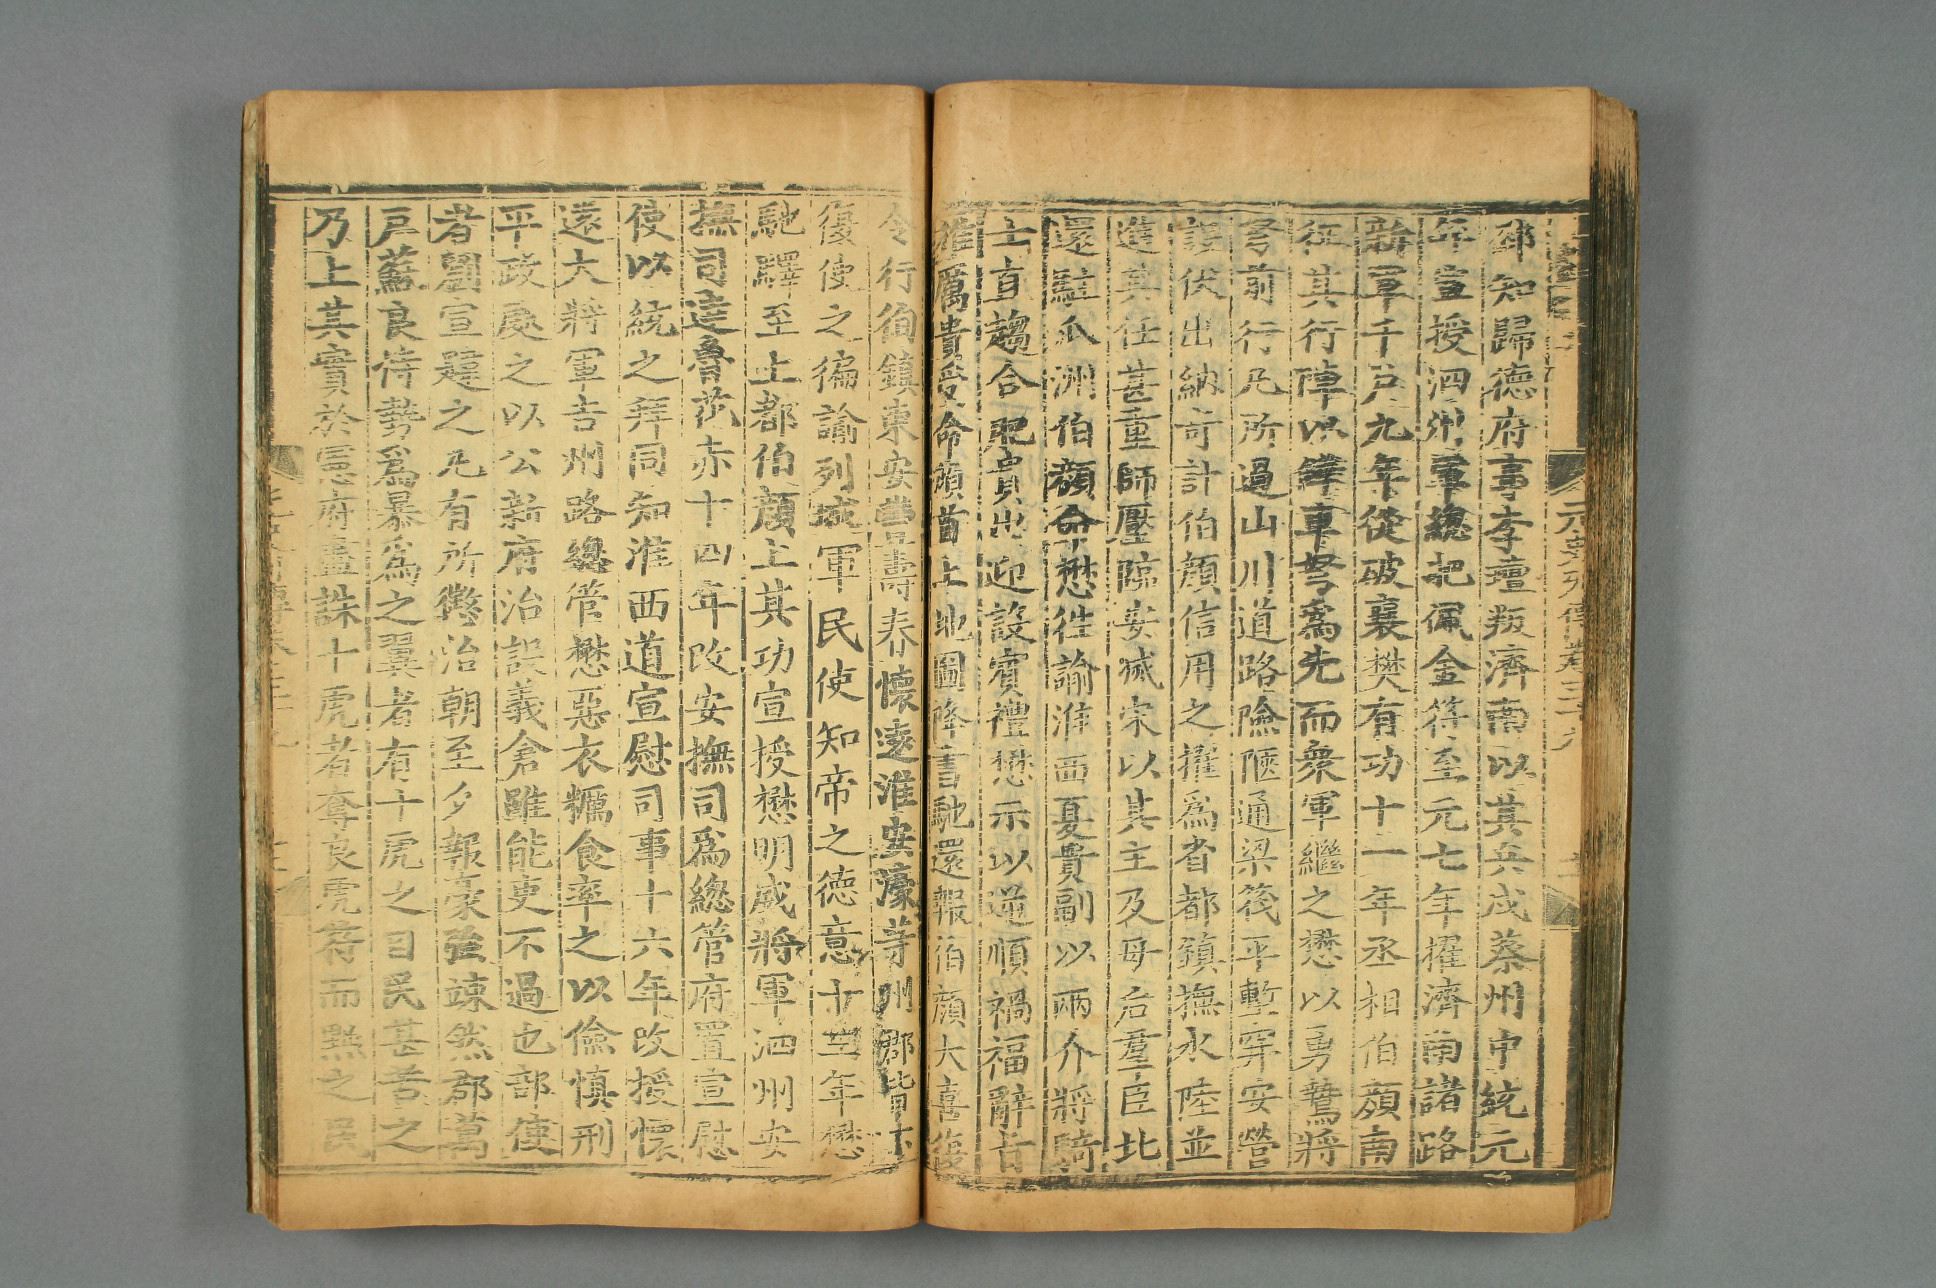 鄆知歸德府事李璮叛濟南以其兵戍蔡州中統元
年宣授泗州軍總把佩金符至元七年擢濟南諸路
新軍千户九年從破襄樊有功十一年丞相伯顔南
征其行陣以鐸車弩爲先而衆軍繼之懋以勇鷙將
弩前行凡所過山川道路險陋通梁筏平塹穽安營
設伏出納奇計伯顔信用之擢爲省都鎮撫水陸並
進其任甚重師壓臨安㓕宋以其主及母后羣臣北
還駐瓜洲伯顔命懋徃諭淮西夏貴副以兩介將騎
士直趨合肥貴出迎設賓禮懋示以逆順禍福辭旨
雄厲貴受命頓首上地圖降書馳還報伯顔大喜復
令行徇鎮東安豊壽春懷逺淮安濠等州郡皆下
復使之徧諭列城軍民使知帝之德意十三年懋
馳驛至上都伯顔上其功宣授懋明威將軍泗州安
撫司達魯花赤十四年改安撫司爲緫管府置宣慰
使以統之拜同知淮西道宣慰司事十六年改授懷
逺大將軍吉州路緫管懋惡衣糲食率之以儉慎刑
平政處之以公新府治設義倉雖能吏不過也部使
者劉宣薦之凡有所徴治朝至夕報豪強竦然郡萬
户蘇良恃勢爲暴爲之翼者有十虎之目民甚苦之
乃上其實於憲府盡誅十虎者奪良虎符而黜之民
元史列傳卷三十九